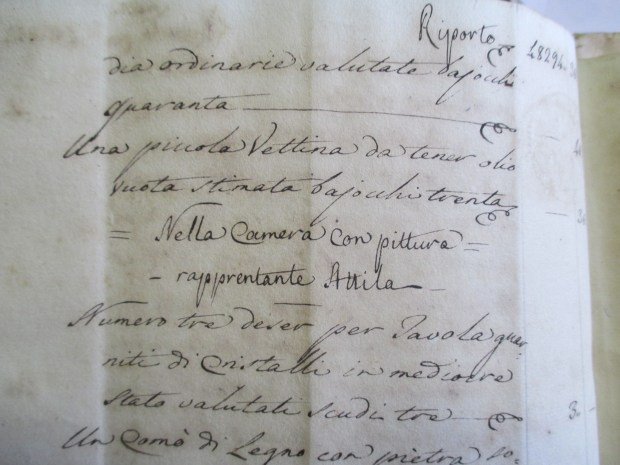 Riporto 18294
dia ordinarie valutate bajocchi
quaranta
Una piccola Vettina da tener olio
vuota stimata bajocchi trenta
= Nella Camera con pittura =
- rapprentante Attila -
Numero tre deser per Tavola guar-
niti di Cristalli in mediocre
stato valutati scudi tre 3
Un Comò di Legno con pietra so-